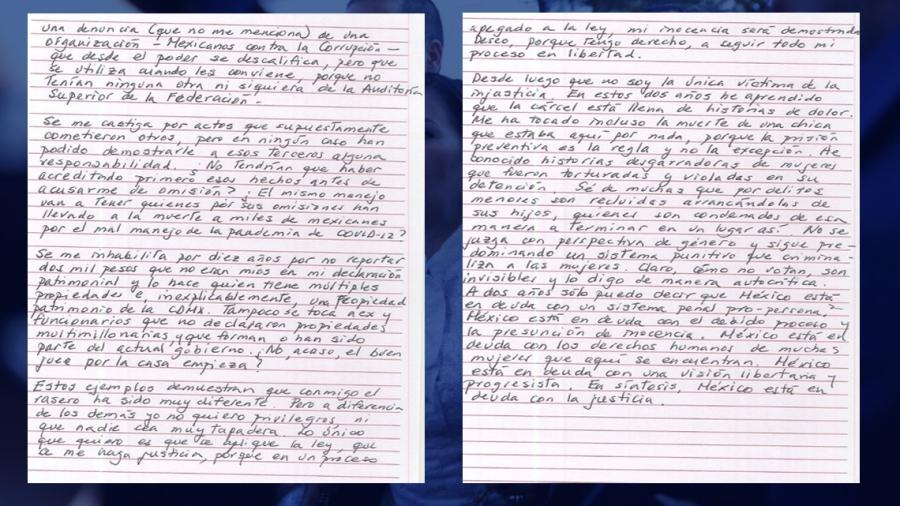 una denuncia (que no me menciona) de una
organización – Mexicanos contra la Corrupción –
que desde el poder se descalifica, pero que
se utiliza cuando les conviene, porque no
tenían ninguna otra ni siquiera de la Auditoría
Superior de la Federación –
Se me castiga por actos que supuestamente
cometieron otros, pero en ningún caso han
podido demostrarle a esos terceros alguna
responsabilidad. ¿No tendrían que haber
acreditado primero esos hechos antes de
acusarme de omisión? ¿El mismo manejo
van a tener quienes por sus omisiones han
llevado a la muerte a miles de mexicanos
por el mal manejo de la pandemia de COVID-12?
Se me inhabilita por diez años por no reportar
dos mil pesos que no eran míos en mi declaración
patrimonial y lo hace quien tiene múltiples
propiedades e, inexplicablemente, una propiedad
patrimonio de la CDMX. Tampoco se toca a ex y
funcionarios que no declararon propiedades
multimillonarias y que forman o han sido
parte del actual gobierno. ¿No, acaso, el buen
juez por la casa empieza?
Estos ejemplos demuestran que conmigo el
rasero ha sido muy diferente. Pero a diferencia
de los demás yo no quiero privilegios, ni
que nadie sea muy tapadera. Lo único
que quiero es que se aplique la ley, que
se me haga justicia, porque en un proceso
apegado a la ley, mi inocencia será demostrada
Deseo, porque tengo derecho, a seguir todo mi
proceso en libertad.
Desde luego que no soy la única víctima de la
injusticia. En estos dos años he aprendido
que la cárcel está llena de historias de dolor.
Me ha tocado incluso la muerte de una chica
que estaba aquí por nada, porque la prisión
preventiva es la regla y no la excepción. He
conocido historias desgarradoras de mujeres
que fueron torturadas y violadas en su
detención. Sé de muchas que por delitos
menores son recluidas arrancándolas de
sus hijos, quienes son condenados de esa
manera a terminar en un lugar así. No se
juzga con perspectiva de género y sigue pre-
dominando un sistema punitivo que crimina-
liza a las mujeres. Claro, cómo no votan, son
invisibles y lo digo de manera autocrítica.
A dos años sólo puedo decir que México está
en deuda con un sistema penal pro-persona,
México está en deuda con el debido proceso y
la presunción de inocencia. México está en
deuda con los derechos humanos de muchas
mujeres que aquí se encuentran. México
está en deuda con una visión libertaria y
progresista. En síntesis, México está en
deuda con la justicia.